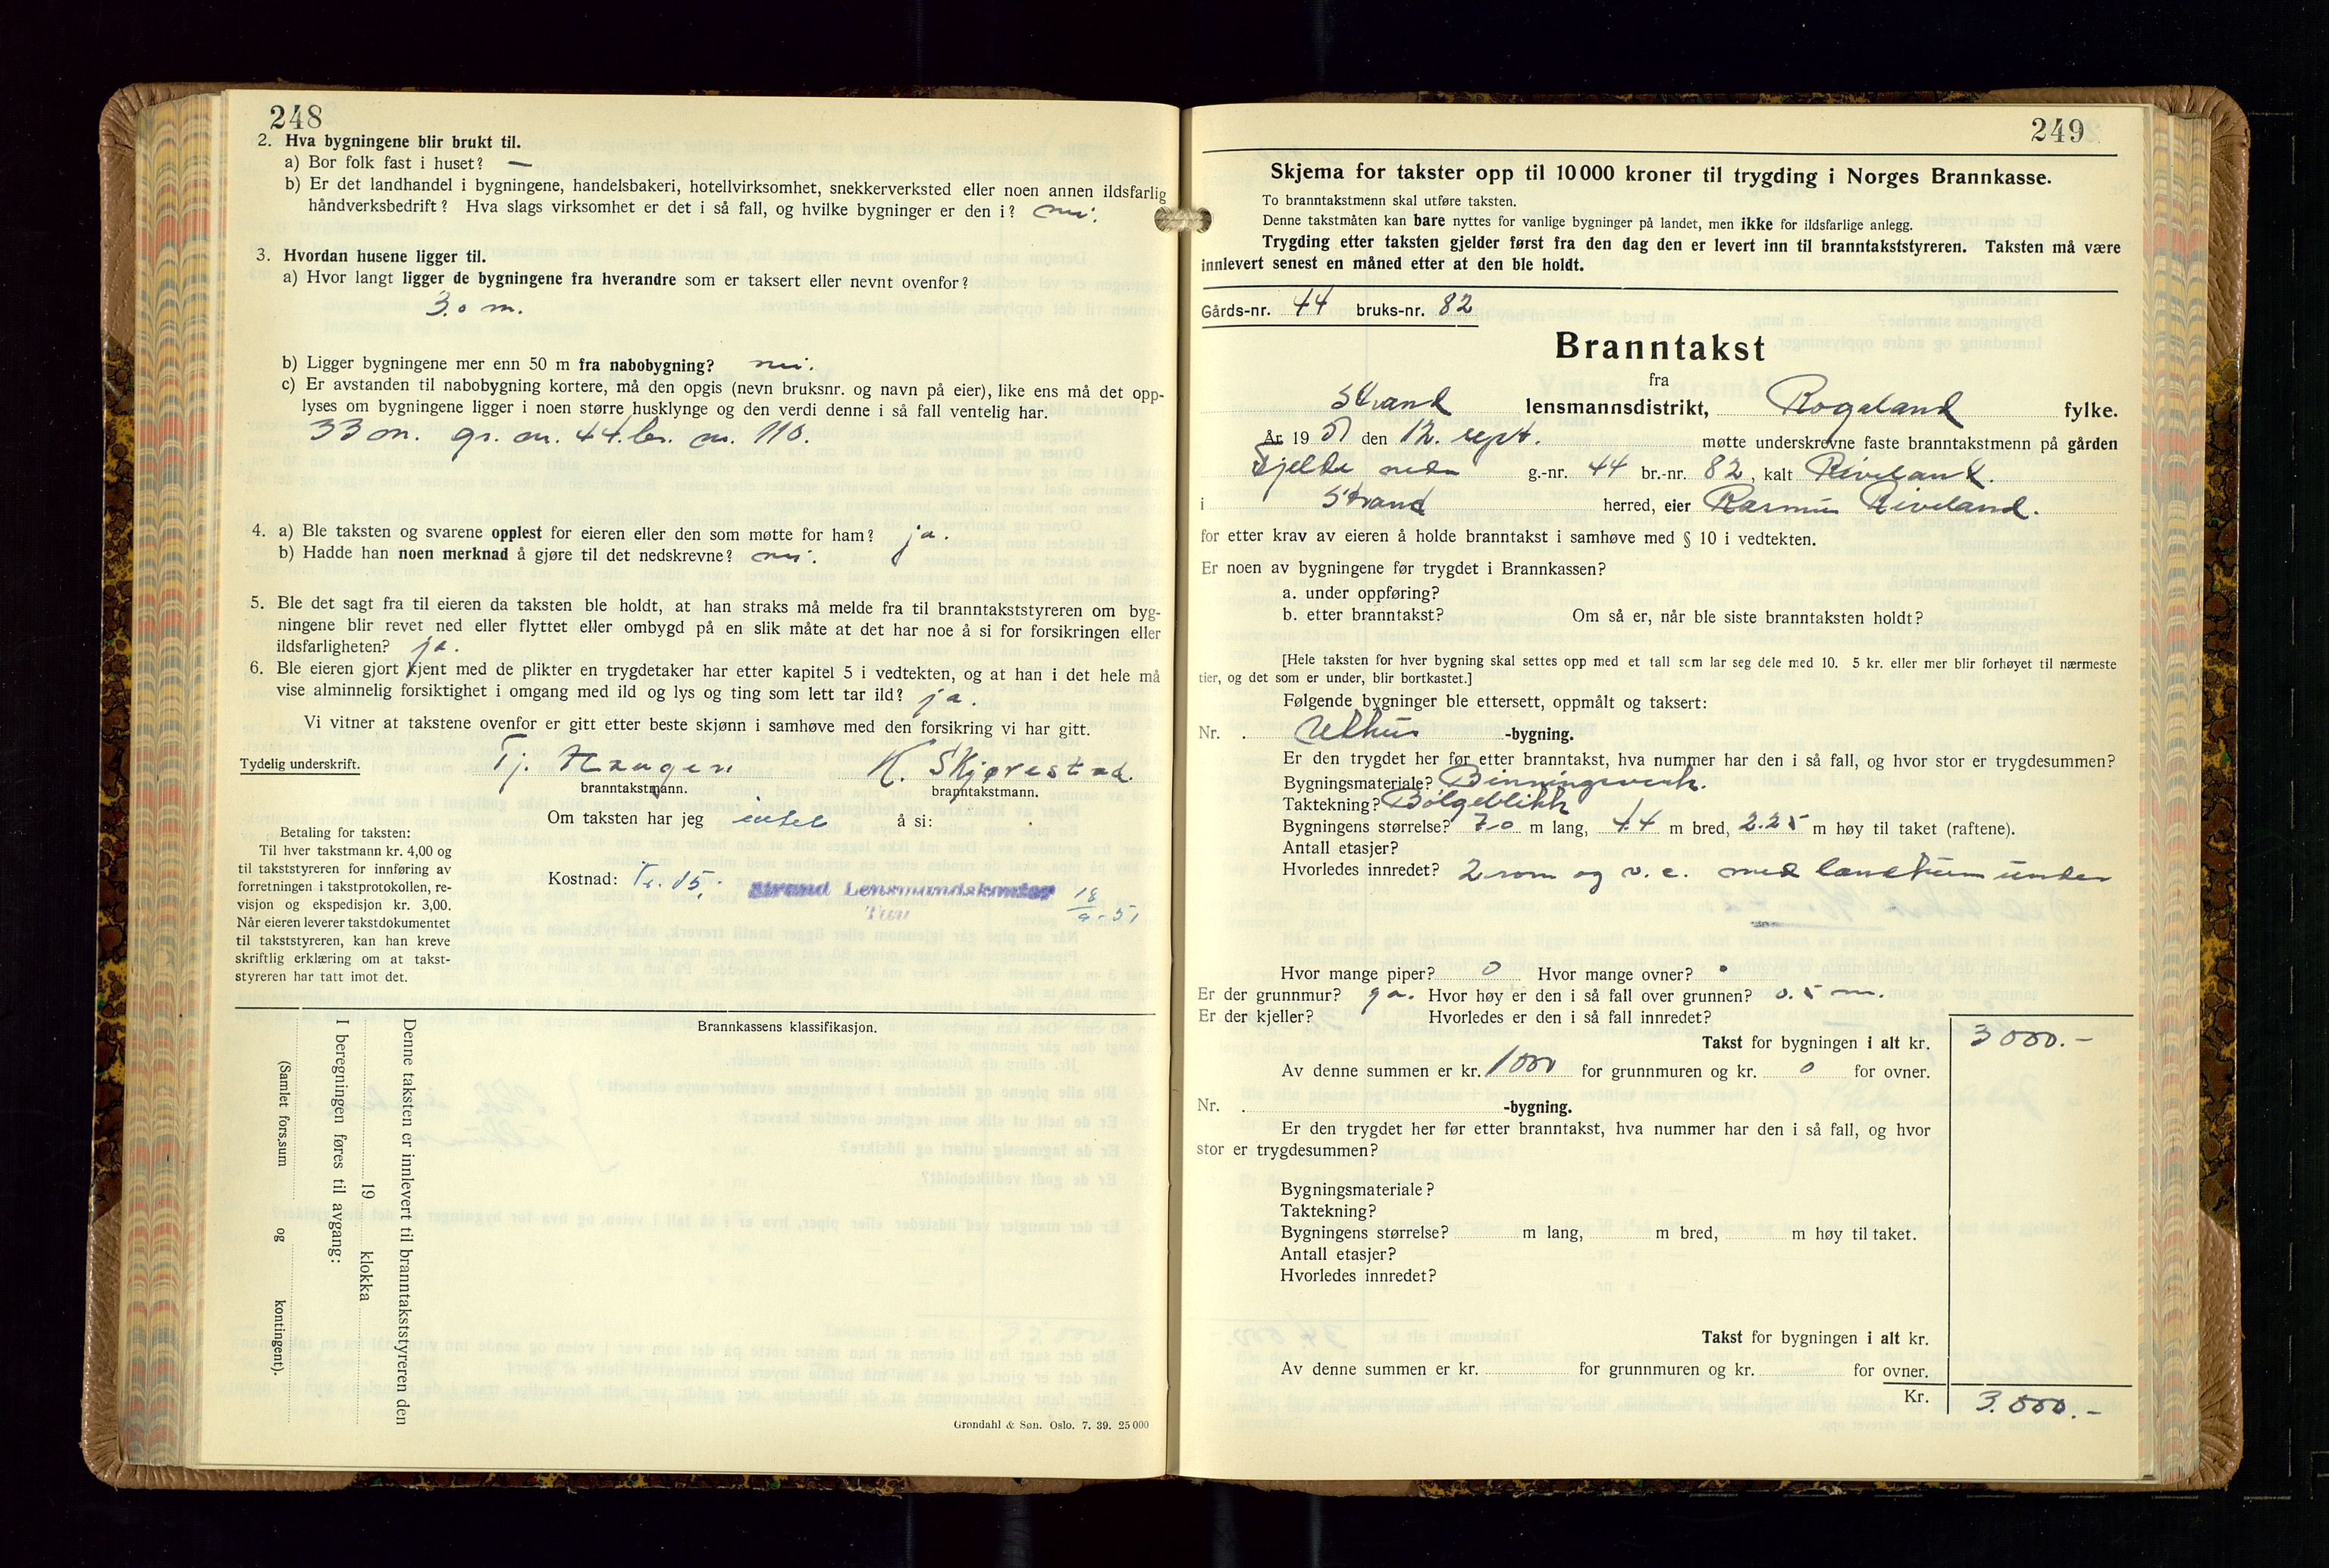 248
2. Hva bygningene blir brukt til.
a) Bor folk fast i huset? —
b) Er det landhandel i bygningene, handelsbakeri, hotellvirksomhet, snekkerverksted eller noen annen ildsfarlig
håndverksbedrift? Hva slags virksomhet er det i så fall, og hvilke bygninger er den i? nei.
3. Hvordan husene ligger til.
a) Hvor langt ligger de bygningene fra hverandre som er taksert eller nevnt ovenfor?
3.0 m.
b) Ligger bygningene mer enn 50 m fra nabobygning? nei.
c) Er avstanden til nabobygning kortere, må den opgis (nevn bruksnr. og navn på eier), like ens må det opp-
lyses om bygningene ligger i noen større husklynge og den verdi denne i så fall ventelig har.
33 m. gr. nr. 44. br. nr. 110.
4. a) Ble taksten og svarene opplest for eieren eller den som møtte for ham? ja.
b) Hadde han noen merknad å gjøre til det nedskrevne? nei.
5. Ble det sagt fra til eieren da taksten ble holdt, at han straks må melde fra til branntakststyreren om byg-
ningene blir revet ned eller flyttet eller ombygd på en slik måte at det har noe å si for forsikringen eller
ildsfarligheten? ja.
6. Ble eieren gjort kjent med de plikter en trygdetaker har etter kapitel 5 i vedtekten, og at han i det hele må
vise alminnelig forsiktighet i omgang med ild og lys og ting som lett tar ild? ja.
Vi vitner at takstene ovenfor er gitt etter beste skjønn i samhøve med den forsikring vi har gitt.
Tydelig underskrift. Tj. Haugen K. Skjørestad.
branntakstmann. branntakstmann.
Om taksten har jeg intet å si:
Betaling for taksten:
Til hver takstmann kr. 4,00 og
til takststyreren for innføring av
forretningen i takstprotokollen, re-
visjon og ekspedisjon kr. 3,00.
Når eieren leverer takstdokumentet
til takststyreren, kan han kreve
skriftlig erklæring om at takst-
styreren har tatt imot det.
Kostnad: Kr. 15. Strand Lensmandskontor 18/9-51
Tau
Brannkassens klassifikasjon.
Denne taksten er innlevert til branntakststyreren den
19 klokka
I beregningen føres til avgang:
(Samlet fors.sum og kontingent).
Grøndahl & Søn. Oslo. 7. 39. 25 000
249
Skjema for takster opp til 10 000 kroner til trygding i Norges Brannkasse.
To branntakstmenn skal utføre taksten.
Denne takstmåten kan bare nyttes for vanlige bygninger på landet, men ikke for ildsfarlige anlegg.
Trygding etter taksten gjelder først fra den dag den er levert inn til branntakststyreren. Taksten må være
innlevert senest en måned etter at den ble holdt.
Gårds-nr. 44 bruks-nr. 82
Branntakst
fra
Strand lensmannsdistrikt, Rogaland fylke.
År 1951 den 12. sept. møtte underskrevne faste branntakstmenn på gården
Fjelde nedre g.-nr. 44 br.-nr. 82, kalt Riveland.
i Strand herred, eier Rasmus Riveland.
for etter krav av eieren å holde branntakst i samhøve med § 10 i vedtekten.
Er noen av bygningene før trygdet i Brannkassen?
a. under oppføring?
b. etter branntakst? Om så er, når ble siste branntaksten holdt?
[Hele taksten for hver bygning skal settes opp med et tall som lar seg dele med 10. 5 kr. eller mer blir forhøyet til nærmeste
tier, og det som er under, blir bortkastet.]
Følgende bygninger ble ettersett, oppmålt og taksert:
Nr. . Uthus -bygning.
Er den trygdet her før etter branntakst, hva nummer har den i så fall, og hvor stor er trygdesummen?
Bygningsmateriale? Binningsverk.
Taktekning? Bølgeblikk
Bygningens størrelse? 7.0 m lang, 4.4 m bred, 2.25 m høy til taket (raftene).
Antall etasjer?
Hvorledes innredet? 2 rom og v. c. med landkum under
Hvor mange piper? 0 Hvor mange ovner? 0
Er der grunnmur? ja. Hvor høy er den i så fall over grunnen? 0.5 m.
Er der kjeller? Hvorledes er den i så fall innredet?
Takst for bygningen i alt kr. 3000.-
Av denne summen er kr. 1000 for grunnmuren og kr. 0 for ovner.
Nr. . -bygning.
Er den trygdet her før etter branntakst, hva nummer har den i så fall, og hvor
stor er trygdesummen?
Bygningsmateriale?
Taktekning?
Bygningens størrelse? m lang, m bred, m høy til taket.
Antall etasjer?
Hvorledes innredet?
Takst for bygningen i alt kr.
Av denne summen er kr. for grunnmuren og kr. for ovner.
Kr. 3.000.-